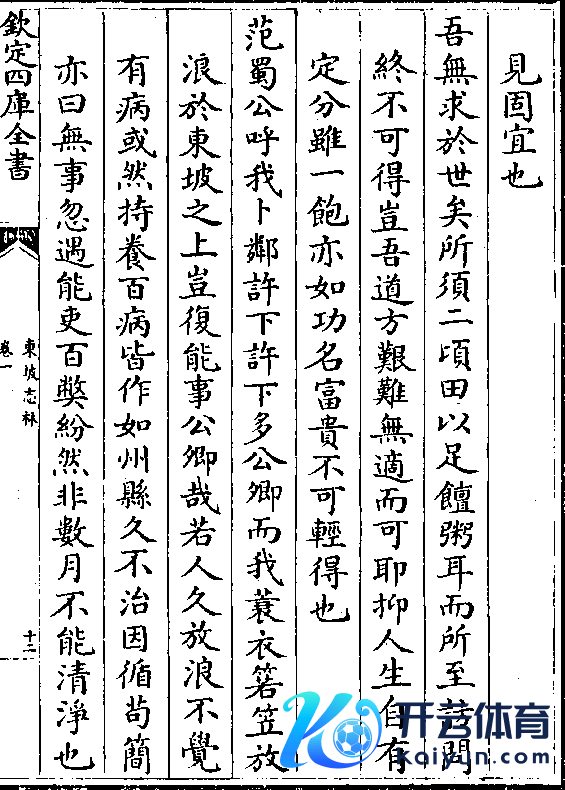 見固宜也
吾無求於世矣所須二頃田以足饘粥耳而所至訪問
終不可得豈吾道方艱難無適而可耶抑人生自有
定分雖一飽亦如功名富貴不可輕得也
范蜀公呼我卜鄰許下許下多公卿而我蓑衣箬笠放
浪於東坡之上豈復能事公卿哉若人久放浪不覺
有病或然持養百病皆作如州縣久不治因循苟簡
亦曰無事忽遇能吏百獘紛然非數月不能清淨也
欽定四庫全書
東坡志林
卷一
十二
开芸体育
kaiyun.com